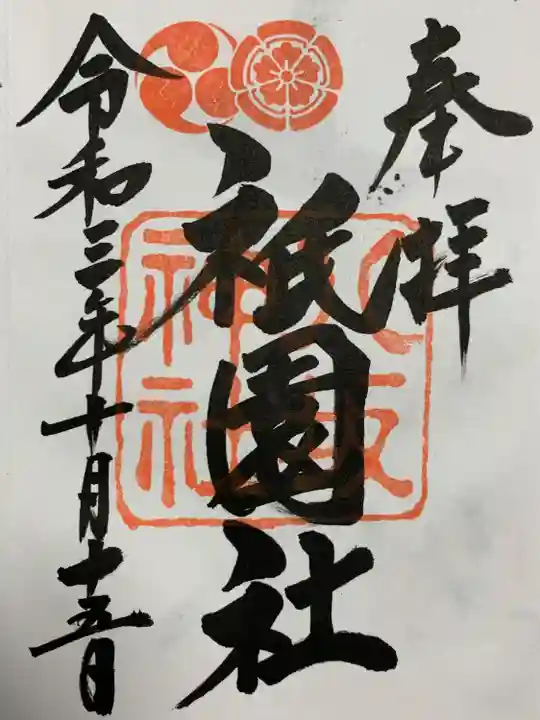 奉拝
祇園社
八坂神社
令和三年十月十五日